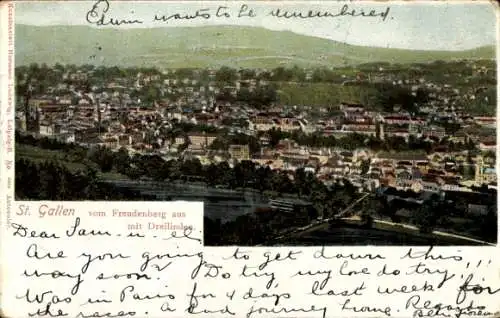 Edwin wants to be remembered.
St. Gallen vom Freudenberg aus
mit Dreilinden.
Dear Sam-u-el
Are you going to get down this
way soon? Do try my love do try!!!
Was in Paris for 4 days last week for
the races. A sad journey home. Regards